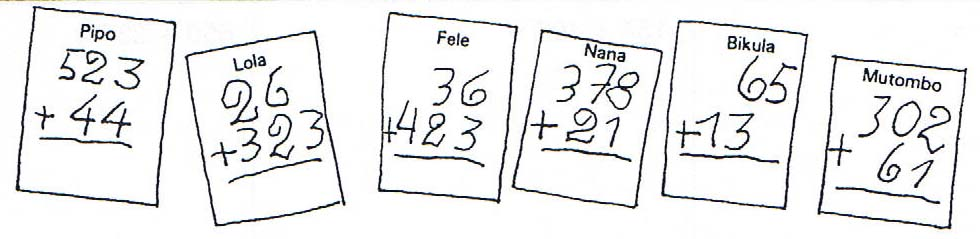 Pipo
523
+ 44
Lola
26
+323
Fele
36
+423
Nana
378
+21
Bikula
65
+13
Mutombo
302
+ 61